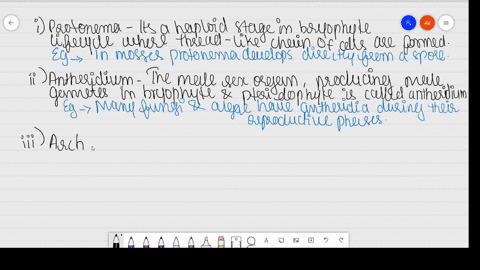 i) Protonema - Its a haploid stage in bryophyte
lifecycle where thread-like chain of cells are formed.
Eg → In mosses protonema develops directly from a spore.
ii) Antheridium - The male sex organ, producing male
gametes in bryophyte & pteridophyte is called antheridium
Eg → Many fungi & algae have antheridia during their
reproductive phases.
iii) Arch